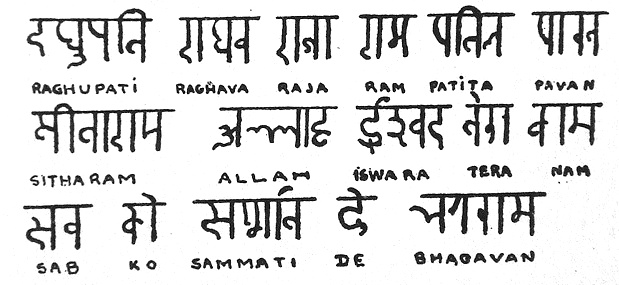 रघुपति राघव राजा राम पतित पावन
RAGHUPATi RAGHAVA RAJA RAM PATITA PAVAN
सीताराम अल्लाह ईश्वर तेरा नाम
SITHARAM ALLAH iSWARA TERA NAM
सब को सन्मति दे भगवान
SAB KO SAMMATI DE BHAGAVAN